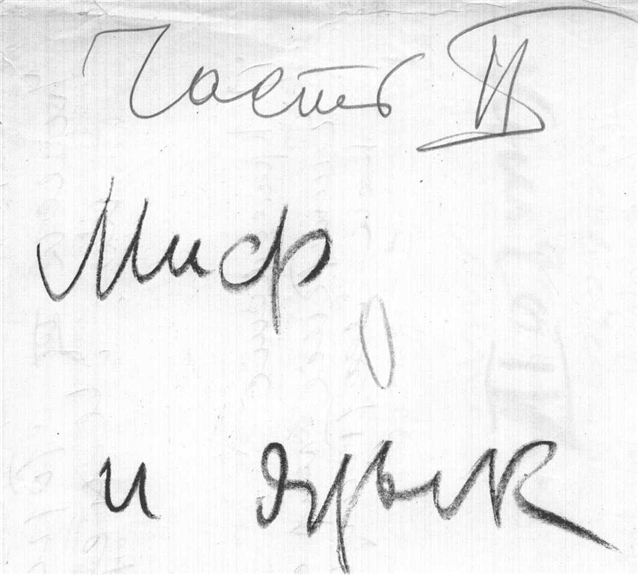 Часть II
Миф
и язык